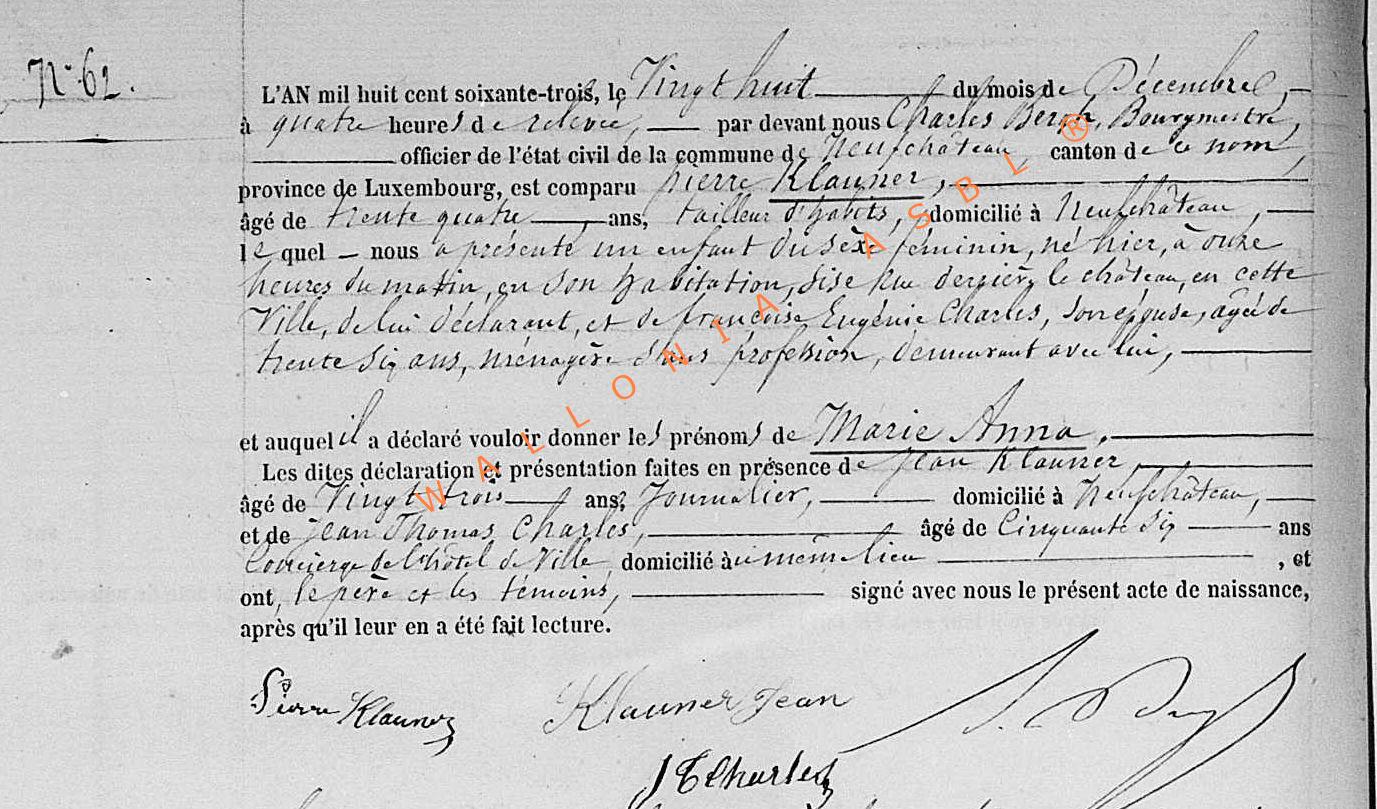 N° 62.
L'AN mil huit cent soixante-trois, le Vingt huit du mois de Décembre,
à quatre heures de relevée, par devant nous Charles Bergh, Bourgmestre,
officier de l'état civil de la commune de Neufchâteau, canton de ce nom,
province de Luxembourg, est comparu pierre Klauner,
âgé de trente quatre ans, tailleur d'habits, domicilié à Neufchâteau,
le quel – nous a présenté un enfant du sèxe féminin, né hier, à onze
heures du matin, en son habitation, sise Rue derrière le château, en cette
Ville, de lui déclarant, et de françoise Eugénie Charles, son épouse, agée de
trente six ans, ménagère sans profession, demeurant avec lui,
et auquel il a déclaré vouloir donner les prénoms de Marie Anna.
Les dites déclaration et présentation faites en présence de Jean Klauner
âgé de Vingt trois ans, Journalier, domicilié à Neufchâteau,
et de Jean Thomas Charles, âgé de Cinquante six ans
Concierge de l'hôtel de Ville, domicilié au même lieu, et
ont, le père et les témoins, signé avec nous le présent acte de naissance,
après qu'il leur en a été fait lecture.
Pierre Klauner Klauner Jean
J T Charles
WALLONIA ASBL ®